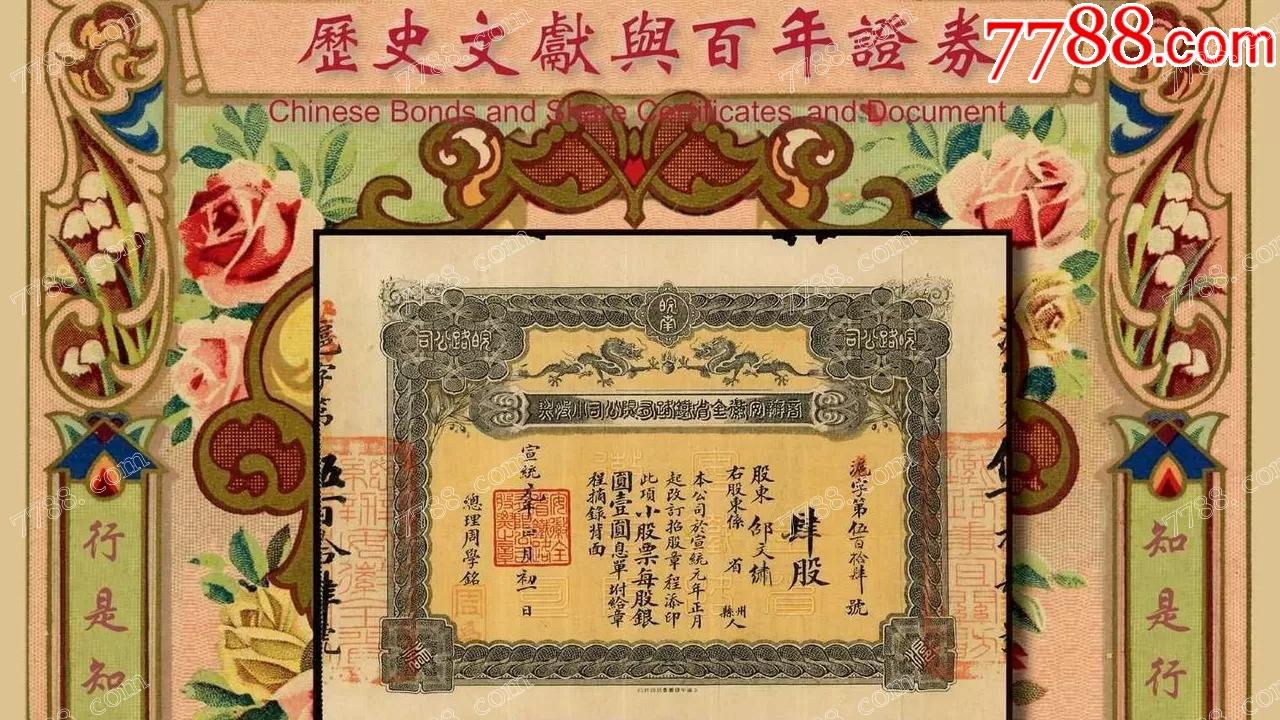 歷史文獻與百年證券
7788.com
Chinese Bonds and Share Certificates and Document
皖南
皖路公司
皖路公司
商辦安徽全省鐵路有限公司小股票
滬字第伍百拾肆號
肆股
股東邵天繡
右股東係 省 州縣人
本公司於宣統元年正月
起改訂招股章程添印
此項小股票每股銀
圓壹圓息單附給章
程摘錄背面
宣統元年 月初一日
總理周學銘
知是行
行是知